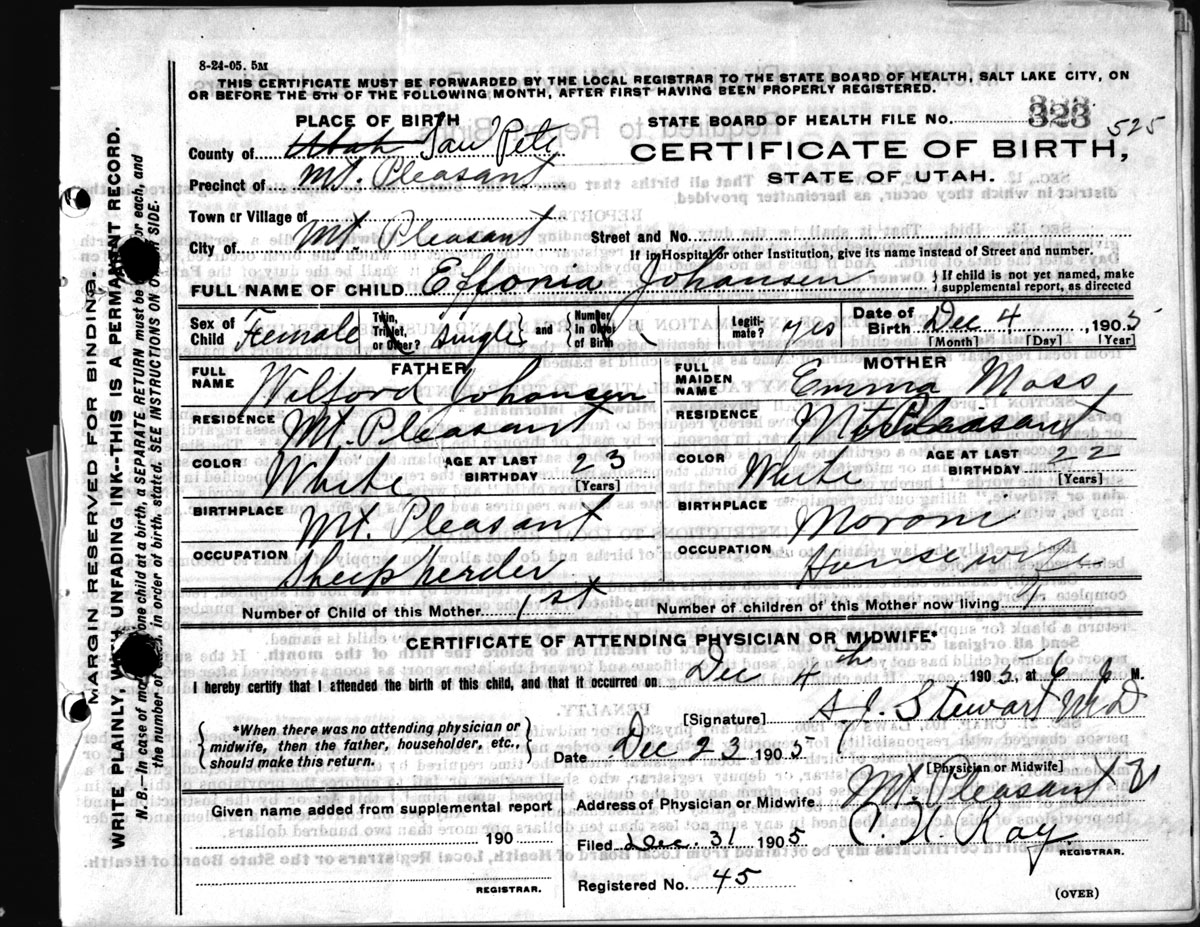 8-24-05. 5M
THIS CERTIFICATE MUST BE FORWARDED BY THE LOCAL REGISTRAR TO THE STATE BOARD OF HEALTH, SALT LAKE CITY, ON
OR BEFORE THE 5TH OF THE FOLLOWING MONTH, AFTER FIRST HAVING BEEN PROPERLY REGISTERED.
PLACE OF BIRTH
County of Utah San Pete
Precinct of Mt. Pleasant
Town or Village of
City of Mt. Pleasant
STATE BOARD OF HEALTH FILE No. 323 525
CERTIFICATE OF BIRTH,
STATE OF UTAH.
Street and No.
If in Hospital or other Institution, give its name instead of Street and number.
FULL NAME OF CHILD Effonia Johansen } If child is not yet named, make supplemental report, as directed
Sex of Child Female Twin, Triplet, or Other? single } and { Number in Order of Birth 1 Legitimate? yes Date of Birth Dec 4, 1905
[Month] [Day] [Year]
FATHER
FULL NAME Wilford Johansen
RESIDENCE Mt. Pleasant
COLOR White AGE AT LAST BIRTHDAY 23 [Years]
BIRTHPLACE Mt. Pleasant
OCCUPATION Sheep herder
MOTHER
FULL MAIDEN NAME Emma Moss
RESIDENCE Mt Pleasant
COLOR White AGE AT LAST BIRTHDAY 22 [Years]
BIRTHPLACE Moroni
OCCUPATION Housewife
Number of Child of this Mother 1st Number of children of this Mother now living 1
CERTIFICATE OF ATTENDING PHYSICIAN OR MIDWIFE*
I hereby certify that I attended the birth of this child, and that it occurred on Dec 4th 1905, at M.
*When there was no attending physician or
midwife, then the father, householder, etc.,
should make this return.
[Signature] A. J. Stewart MD
Date Dec 23 1905
[Physician or Midwife]
Given name added from supplemental report
190
REGISTRAR.
Address of Physician or Midwife Mt. Pleasant
Filed Dec. 31 1905 C. N. Kay REGISTRAR.
Registered No. 45
(OVER)
MARGIN RESERVED FOR BINDING.
WRITE PLAINLY, WITH UNFADING INK--THIS IS A PERMANENT RECORD.
N.B.--In case of more one child at a birth, a SEPARATE RETURN must be for each, and
the number of in order of birth, stated. SEE INSTRUCTIONS ON SIDE.